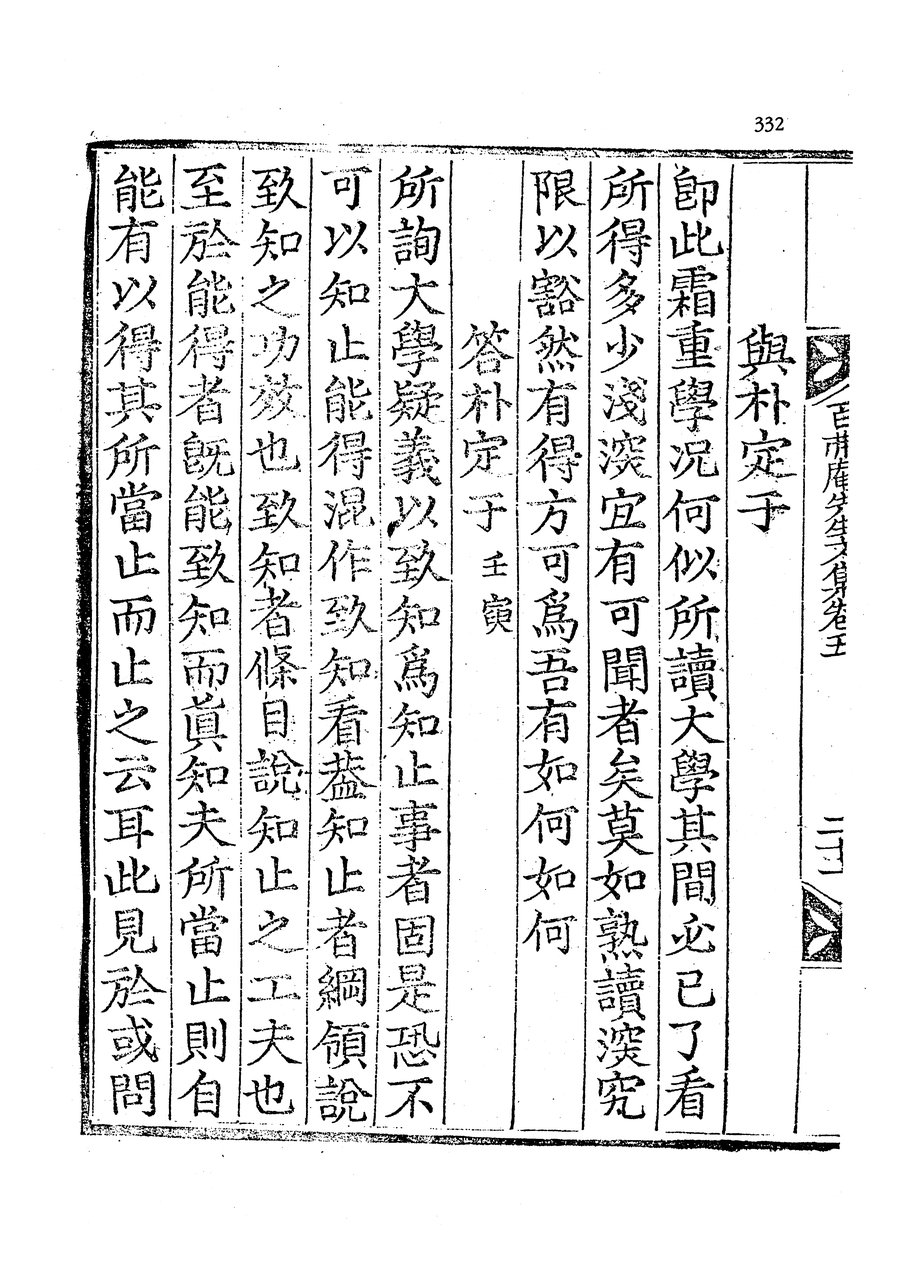 332
百弗庵先生文集卷五
二十二
與朴定于
卽此霜重學况何似所讀大學其間必已了看
所得多少淺深宜有可聞者矣莫如熟讀深究
限以豁然有得方可爲吾有如何如何
答朴定于 壬寅
所詢大學疑義以致知爲知止事者固是恐不
可以知止能得混作致知看蓋知止者綱領說
致知之功效也致知者條目說知止之工夫也
至於能得者旣能致知而眞知夫所當止則自
能有以得其所當止而止之云耳此見於或問